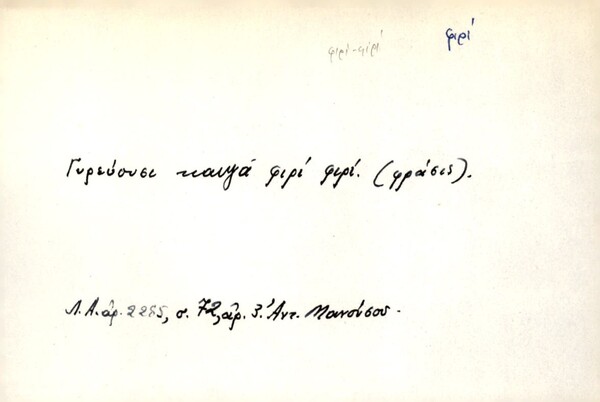 φιρί-φιρί
φιρί
Γυρεύουσι καυγά φιρί φιρί. (φράσις).
Λ.Α. ἀρ. 2285, σ. 72, ἀρ. 3. Ἀντ. Μανούσου.